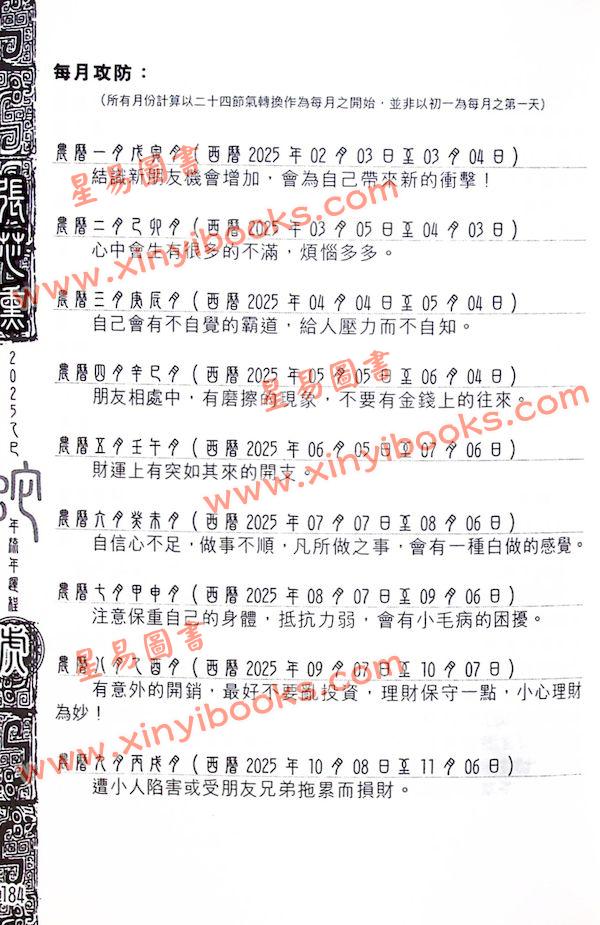 每月攻防：
（所有月份計算以二十四節氣轉換作為每月之開始，並非以初一為每月之第一天）
農曆一月戊寅月（西曆 2025 年 02 月 03 日至 03 月 04 日）
結識新朋友機會增加，會為自己帶來新的衝擊！
農曆二月己卯月（西曆 2025 年 03 月 05 日至 04 月 03 日）
心中會生有很多的不滿，煩惱多多。
農曆三月庚辰月（西曆 2025 年 04 月 04 日至 05 月 04 日）
自己會有不自覺的霸道，給人壓力而不自知。
農曆四月辛巳月（西曆 2025 年 05 月 05 日至 06 月 04 日）
朋友相處中，有磨擦的現象，不要有金錢上的往來。
農曆五月壬午月（西曆 2025 年 06 月 05 日至 07 月 06 日）
財運上有突如其來的開支。
農曆六月癸未月（西曆 2025 年 07 月 07 日至 08 月 06 日）
自信心不足，做事不順，凡所做之事，會有一種白做的感覺。
農曆七月甲申月（西曆 2025 年 08 月 07 日至 09 月 06 日）
注意保重自己的身體，抵抗力弱，會有小毛病的困擾。
農曆八月乙酉月（西曆 2025 年 09 月 07 日至 10 月 07 日）
有意外的開銷，最好不要亂投資，理財保守一點，小心理財
為妙！
農曆九月丙戌月（西曆 2025 年 10 月 08 日至 11 月 06 日）
遭小人陷害或受朋友兄弟拖累而損財。
張芯熏
2025乙巳
蛇
年流年運程
虎
184
星易圖書
www.xinyibooks.com
星易圖書
www.xinyibooks.com
星易圖書
www.xinyibooks.com